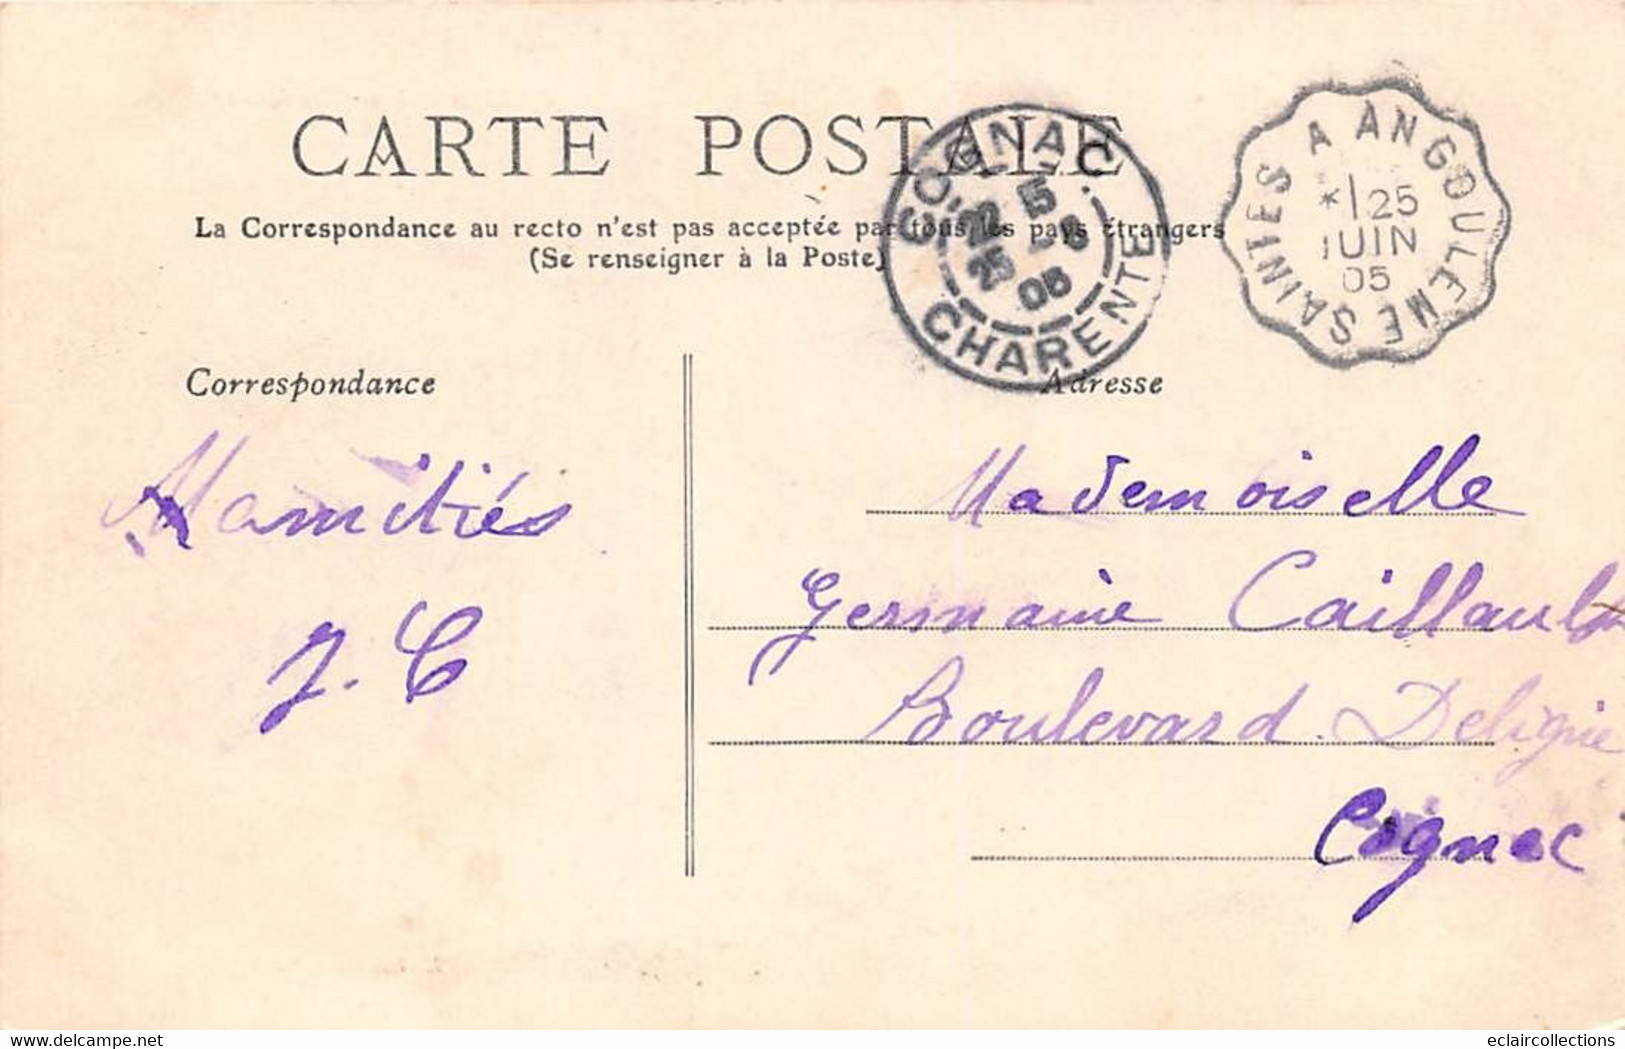 CARTE POSTALE
La Correspondance au recto n'est pas acceptée par tous les pays étrangers
(Se renseigner à la Poste)
COGNAC
CHARENTE
SAINTES A ANGOULEME
* 1 25
JUIN
05
Correspondance
Adresse
amitiés
J. C
Mademoiselle
Germaine Caillault
Boulevard Delignie
Cognac
delcampe.net
eclaircollections